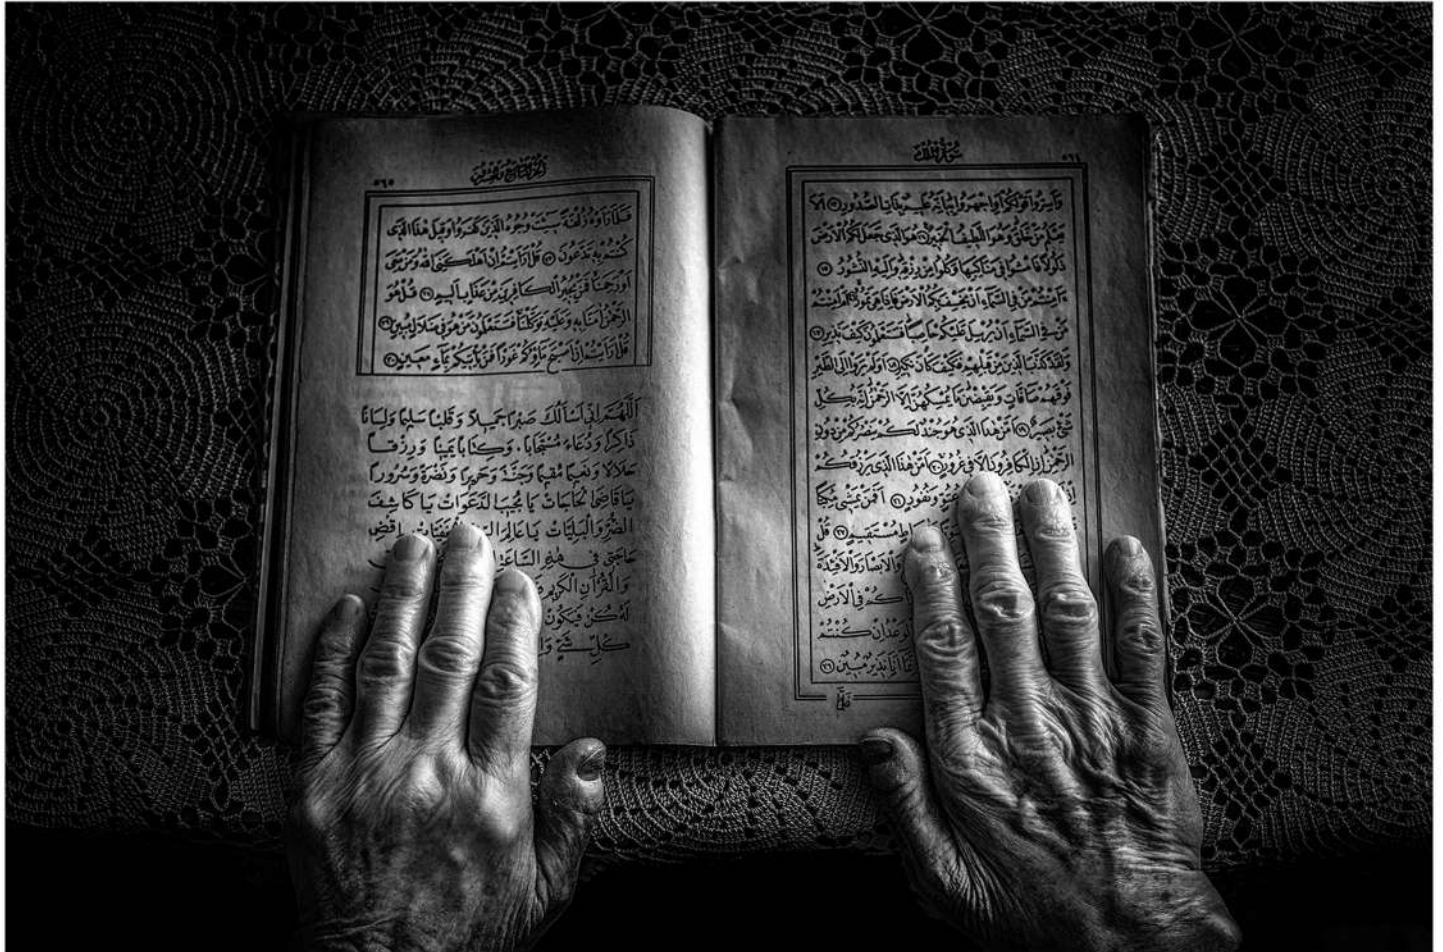 سُورَةُ الْمُلْكِ
٥٦٤
وَاَسِرُّوا قَوْلَكُمْ اَوِ اجْهَرُوا بِهِ اِنَّهُ عَلِيمٌ بِذَاتِ الصُّدُورِ ﴿١٣﴾ اَلَا
يَعْلَمُ مَنْ خَلَقَ وَهُوَ اللَّطِيفُ الْخَبِيرُ ﴿١٤﴾ هُوَ الَّذِى جَعَلَ لَكُمُ الْاَرْضَ
ذَلُولًا فَامْشُوا فِى مَنَاكِبِهَا وَكُلُوا مِنْ رِزْقِهِ وَاِلَيْهِ النُّشُورُ ﴿١٥﴾
ءَاَمِنْتُمْ مَنْ فِى السَّمَاءِ اَنْ يَخْسِفَ بِكُمُ الْاَرْضَ فَاِذَا هِىَ تَمُورُ ﴿١٦﴾ اَمْ اَمِنْتُمْ
مَنْ فِى السَّمَاءِ اَنْ يُرْسِلَ عَلَيْكُمْ حَاصِبًا فَسَتَعْلَمُونَ كَيْفَ نَذِيرِ ﴿١٧﴾
وَلَقَدْ كَذَّبَ الَّذِينَ مِنْ قَبْلِهِمْ فَكَيْفَ كَانَ نَكِيرِ ﴿١٨﴾ اَوَلَمْ يَرَوْا اِلَى الطَّيْرِ
فَوْقَهُمْ صَافَّاتٍ وَيَقْبِضْنَ مَا يُمْسِكُهُنَّ اِلَّا الرَّحْمٰنُ اِنَّهُ بِكُلِّ
شَىْءٍ بَصِيرٌ ﴿١٩﴾ اَمَّنْ هٰذَا الَّذِى هُوَ جُنْدٌ لَكُمْ يَنْصُرُكُمْ مِنْ دُونِ
الرَّحْمٰنِ اِنِ الْكَافِرُونَ اِلَّا فِى غُرُورٍ ﴿٢٠﴾ اَمَّنْ هٰذَا الَّذِى يَرْزُقُكُمْ
اِنْ عُتُوٍّ وَنُفُورٍ ﴿٢١﴾ اَفَمَنْ يَمْشِى مُكِبًّا
مُسْتَقِيمٍ ﴿٢٢﴾ قُلْ
وَالْاَبْصَارَ وَالْاَفْئِدَةَ
فِى الْاَرْضِ
الْوَعْدُ اِنْ كُنْتُمْ
اَنَا نَذِيرٌ مُبِينٌ ﴿٢٦﴾
فَلَمَّا
اَلْجُزْءُ التَّاسِعُ وَالْعِشْرُونَ
٥٦٥
فَلَمَّا رَاَوْهُ زُلْفَةً سِيئَتْ وُجُوهُ الَّذِينَ كَفَرُوا وَقِيلَ هٰذَا الَّذِى
كُنْتُمْ بِهِ تَدَّعُونَ ﴿٢٧﴾ قُلْ اَرَاَيْتُمْ اِنْ اَهْلَكَنِىَ اللّٰهُ وَمَنْ مَعِىَ
اَوْ رَحِمَنَا فَمَنْ يُجِيرُ الْكَافِرِينَ مِنْ عَذَابٍ اَلِيمٍ ﴿٢٨﴾ قُلْ هُوَ
الرَّحْمٰنُ اٰمَنَّا بِهِ وَعَلَيْهِ تَوَكَّلْنَا فَسَتَعْلَمُونَ مَنْ هُوَ فِى ضَلَالٍ مُبِينٍ ﴿٢٩﴾
قُلْ اَرَاَيْتُمْ اِنْ اَصْبَحَ مَاؤُكُمْ غَوْرًا فَمَنْ يَاْتِيكُمْ بِمَاءٍ مَعِينٍ ﴿٣٠﴾
اَللّٰهُمَّ اِنِّى اَسْاَلُكَ صَبْرًا جَمِيلًا وَقَلْبًا سَلِيمًا وَلِسَانًا
ذَاكِرًا وَدُعَاءً مُسْتَجَابًا. وَكِتَابًا يَمِينًا وَرِزْقًا
حَلَالًا وَنَعِيمًا مُقِيمًا وَجَنَّةً وَحَرِيرًا وَنَضْرَةً وَسُرُورًا
يَا قَاضِىَ الْحَاجَاتِ يَا مُجِيبَ الدَّعَوَاتِ يَا كَاشِفَ
الضُّرِّ وَالْبَلِيَّاتِ يَا عَالِمَ السِّرِّ اِقْضِ
حَاجَتِى فِى هٰذِهِ السَّاعَةِ
وَالْقُرْاٰنِ الْكَرِيمِ
لَهُ كُنْ فَيَكُونُ
كُلِّ شَىْءٍ